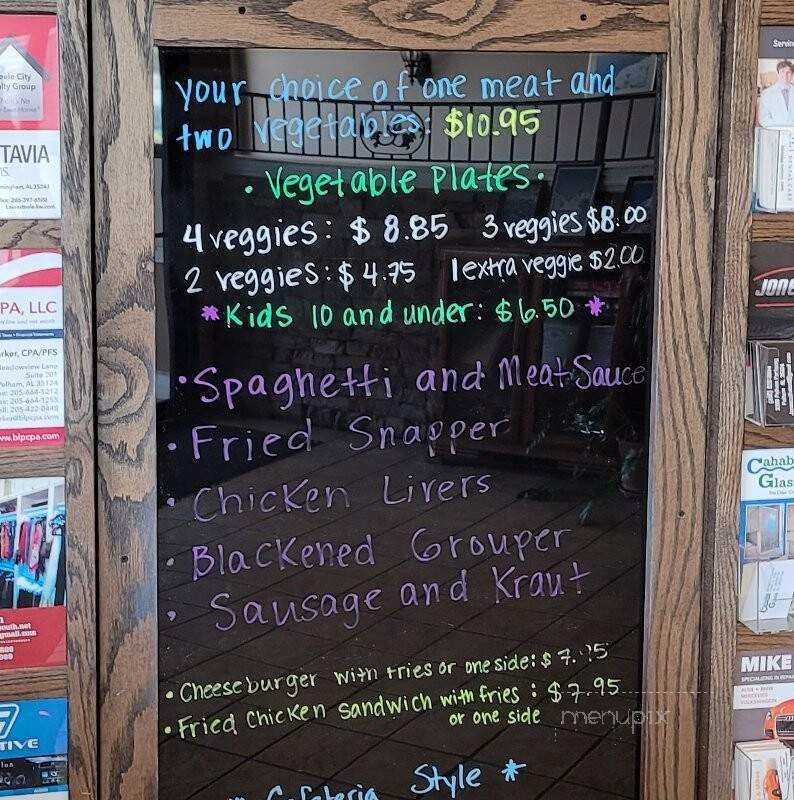 your choice of one meat and
two vegetables: $10.95
• Vegetable Plates •
4 veggies: $ 8.85 3 veggies $8.00
2 veggies: $ 4.75 1 extra veggie $2.00
*Kids 10 and under: $6.50 *
• Spaghetti and Meat Sauce
• Fried Snapper
• Chicken Livers
• Blackened Grouper
• Sausage and Kraut
• Cheeseburger with fries or one side: $
• Fried Chicken Sandwich with fries : $7.95
or one side
menupix
Cafeteria Style *
TAVIA
PA, LLC
rker, CPA/PFS
Suite 201
Pelham, AL 35124
www.blpcpa.com
TIVE
JONE
Cahab
Glas
MIKE